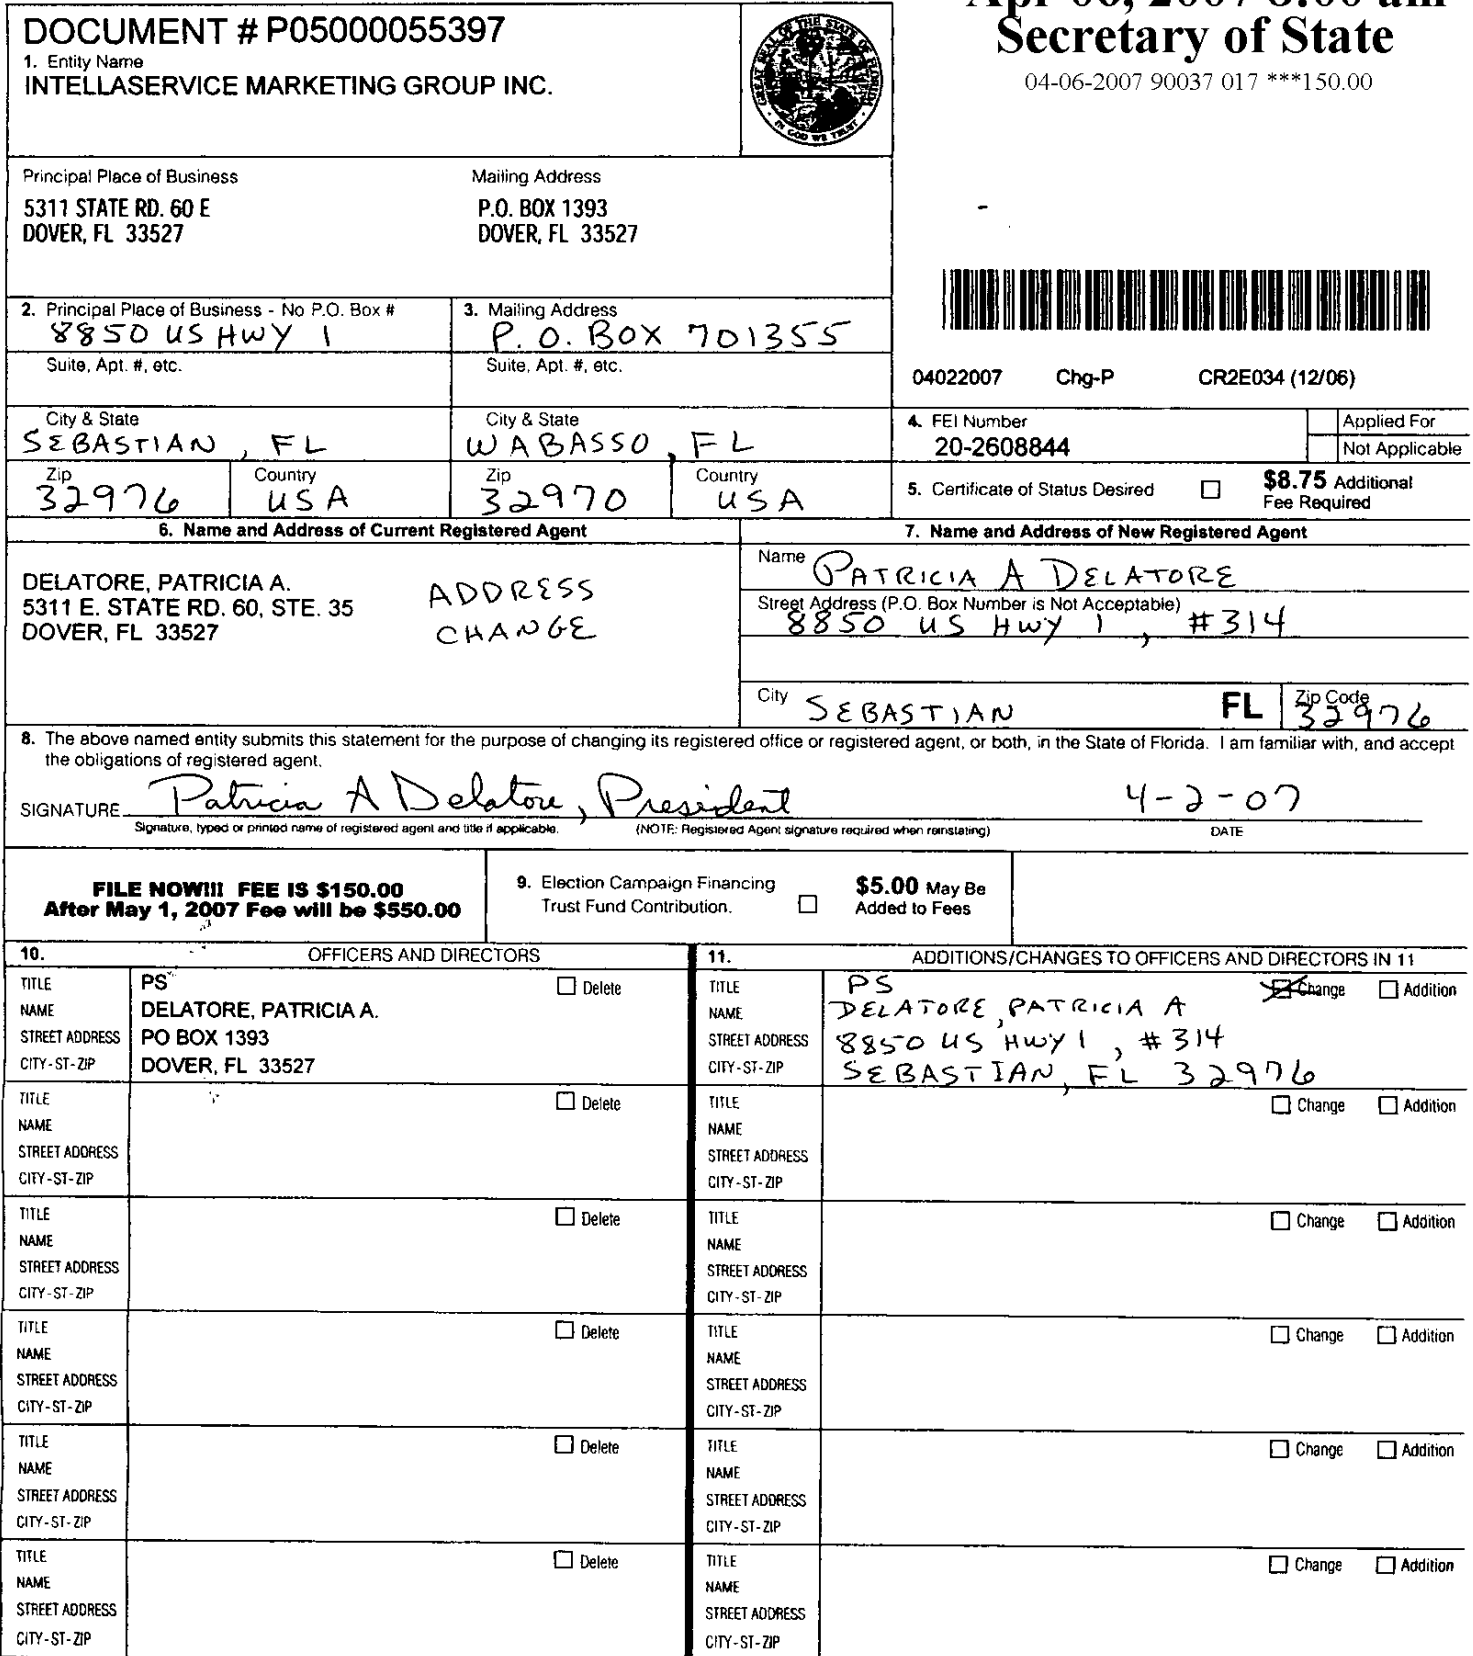 Secretary of State
04-06-2007 90037 017 ***150.00
DOCUMENT # P05000055397
1. Entity Name
INTELLASERVICE MARKETING GROUP INC.
GREAT SEAL OF THE STATE OF FLORIDA
IN GOD WE TRUST
Principal Place of Business
5311 STATE RD. 60 E
DOVER, FL 33527
Mailing Address
P.O. BOX 1393
DOVER, FL 33527
2. Principal Place of Business - No P.O. Box #
8850 US HWY 1
3. Mailing Address
P.O. BOX 701355
Suite, Apt. #, etc.
Suite, Apt. #, etc.
04022007 Chg-P CR2E034 (12/06)
City & State
SEBASTIAN, FL
City & State
WABASSO, FL
Zip
32976
Country
USA
Zip
32970
Country
USA
4. FEI Number
20-2608844
Applied For
Not Applicable
5. Certificate of Status Desired
$8.75 Additional
Fee Required
6. Name and Address of Current Registered Agent
DELATORE, PATRICIA A.
5311 E. STATE RD. 60, STE. 35
DOVER, FL 33527
ADDRESS
CHANGE
7. Name and Address of New Registered Agent
Name PATRICIA A DELATORE
Street Address (P.O. Box Number is Not Acceptable)
8850 US HWY 1, #314
City SEBASTIAN FL Zip Code 32976
8. The above named entity submits this statement for the purpose of changing its registered office or registered agent, or both, in the State of Florida. I am familiar with, and accept
the obligations of registered agent.
SIGNATURE Patricia A Delatore, President 4-2-07
Signature, typed or printed name of registered agent and title if applicable. (NOTE: Registered Agent signature required when reinstating) DATE
FILE NOW!!! FEE IS $150.00
After May 1, 2007 Fee will be $550.00
9. Election Campaign Financing
Trust Fund Contribution.
$5.00 May Be
Added to Fees
10. OFFICERS AND DIRECTORS
TITLE PS Delete
NAME DELATORE, PATRICIA A.
STREET ADDRESS PO BOX 1393
CITY-ST-ZIP DOVER, FL 33527
TITLE Delete
NAME
STREET ADDRESS
CITY-ST-ZIP
TITLE Delete
NAME
STREET ADDRESS
CITY-ST-ZIP
TITLE Delete
NAME
STREET ADDRESS
CITY-ST-ZIP
TITLE Delete
NAME
STREET ADDRESS
CITY-ST-ZIP
TITLE Delete
NAME
STREET ADDRESS
CITY-ST-ZIP
11. ADDITIONS/CHANGES TO OFFICERS AND DIRECTORS IN 11
TITLE PS Change Addition
NAME DELATORE, PATRICIA A
STREET ADDRESS 8850 US HWY 1, #314
CITY-ST-ZIP SEBASTIAN, FL 32976
TITLE Change Addition
NAME
STREET ADDRESS
CITY-ST-ZIP
TITLE Change Addition
NAME
STREET ADDRESS
CITY-ST-ZIP
TITLE Change Addition
NAME
STREET ADDRESS
CITY-ST-ZIP
TITLE Change Addition
NAME
STREET ADDRESS
CITY-ST-ZIP
TITLE Change Addition
NAME
STREET ADDRESS
CITY-ST-ZIP